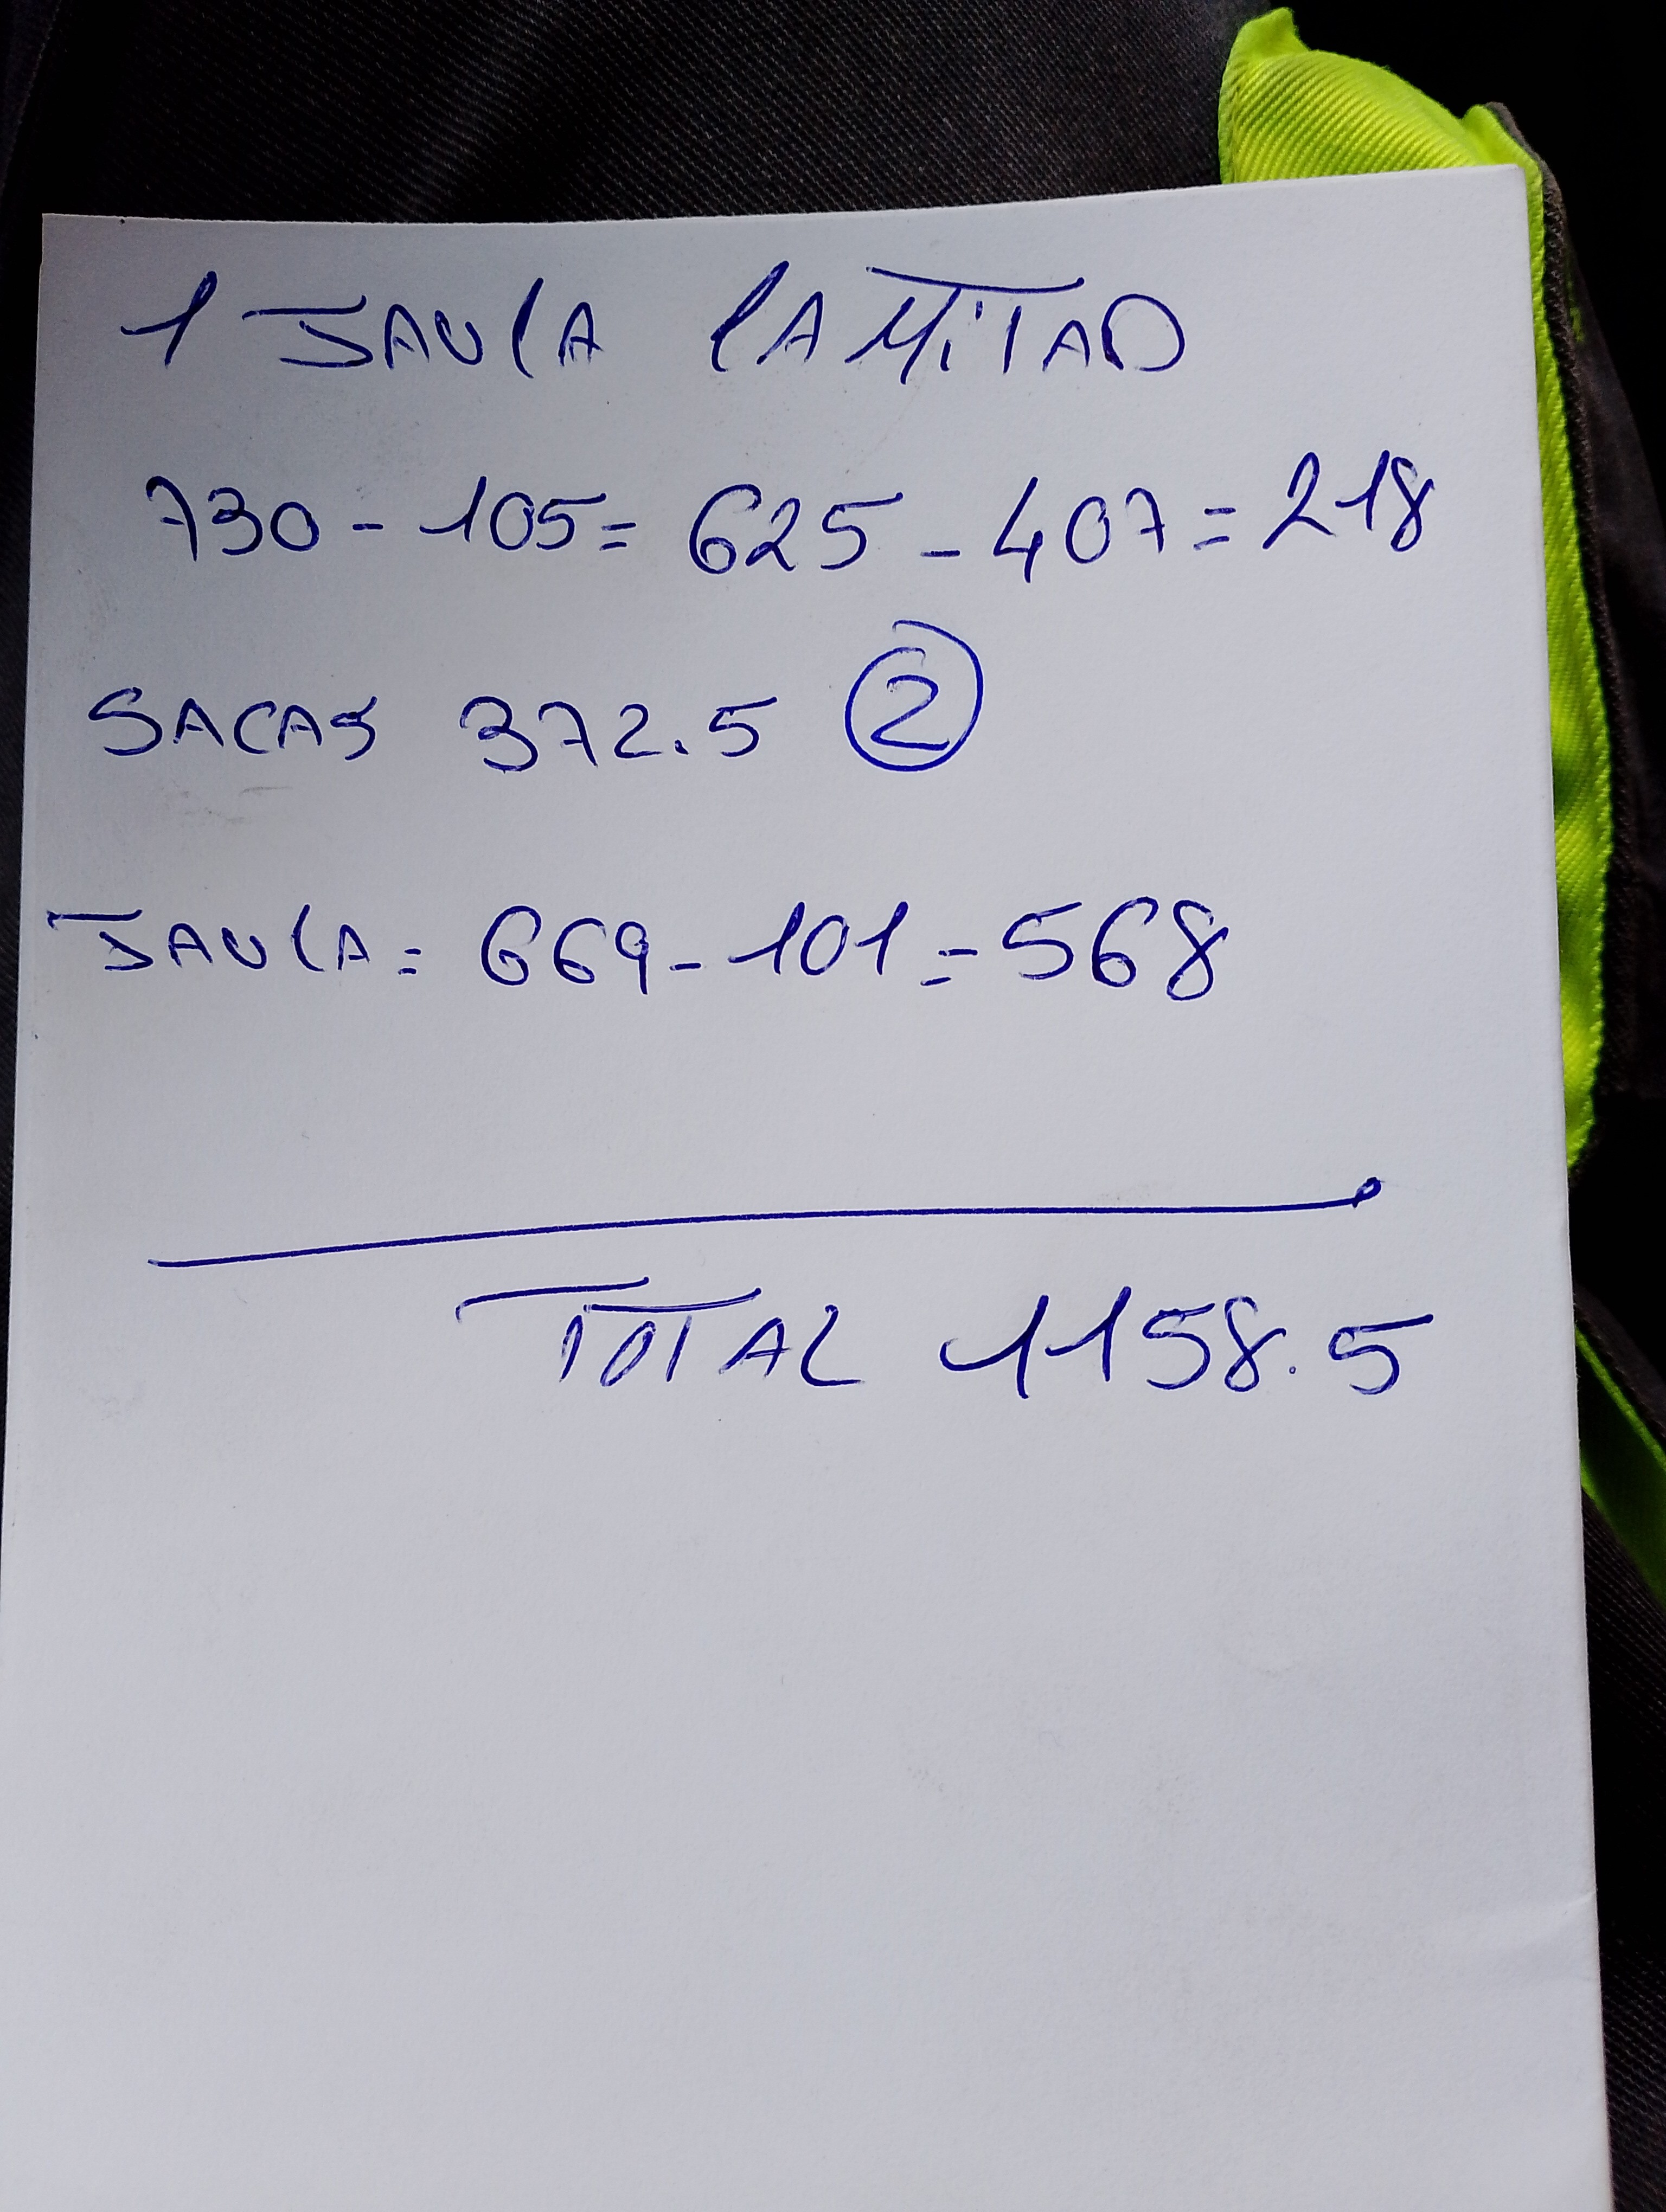 1 JAULA LA MiTAD
730 - 105 = 625 - 407 = 218
SACAS 372.5 2
JAULA = 669 - 101 = 568
TOTAL 1158.5